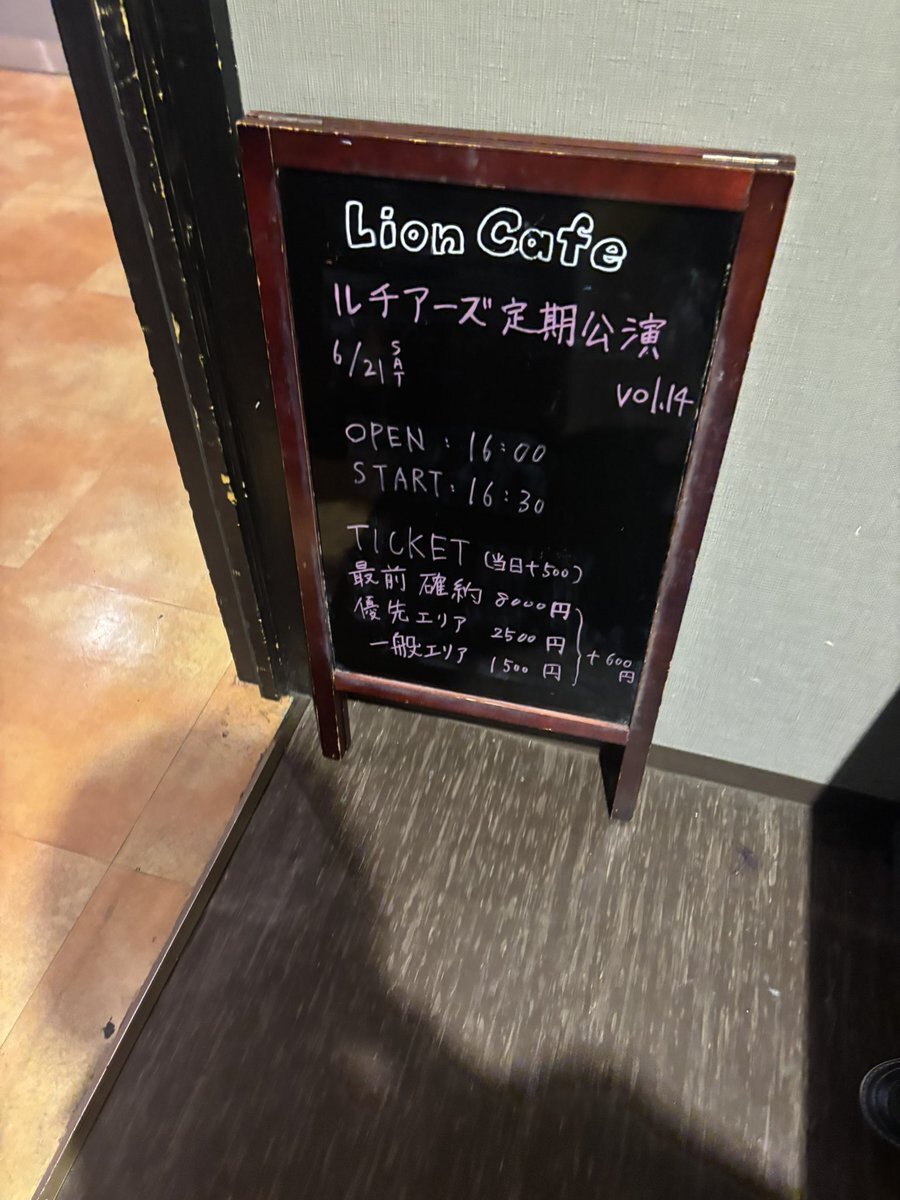 Lion Cafe
ルチアーズ定期公演
6/21 SAT
vol.14
OPEN : 16:00
START : 16:30
TICKET (当日+500)
最前確約 8000円
優先エリア 2500円
一般エリア 1500円
+600円